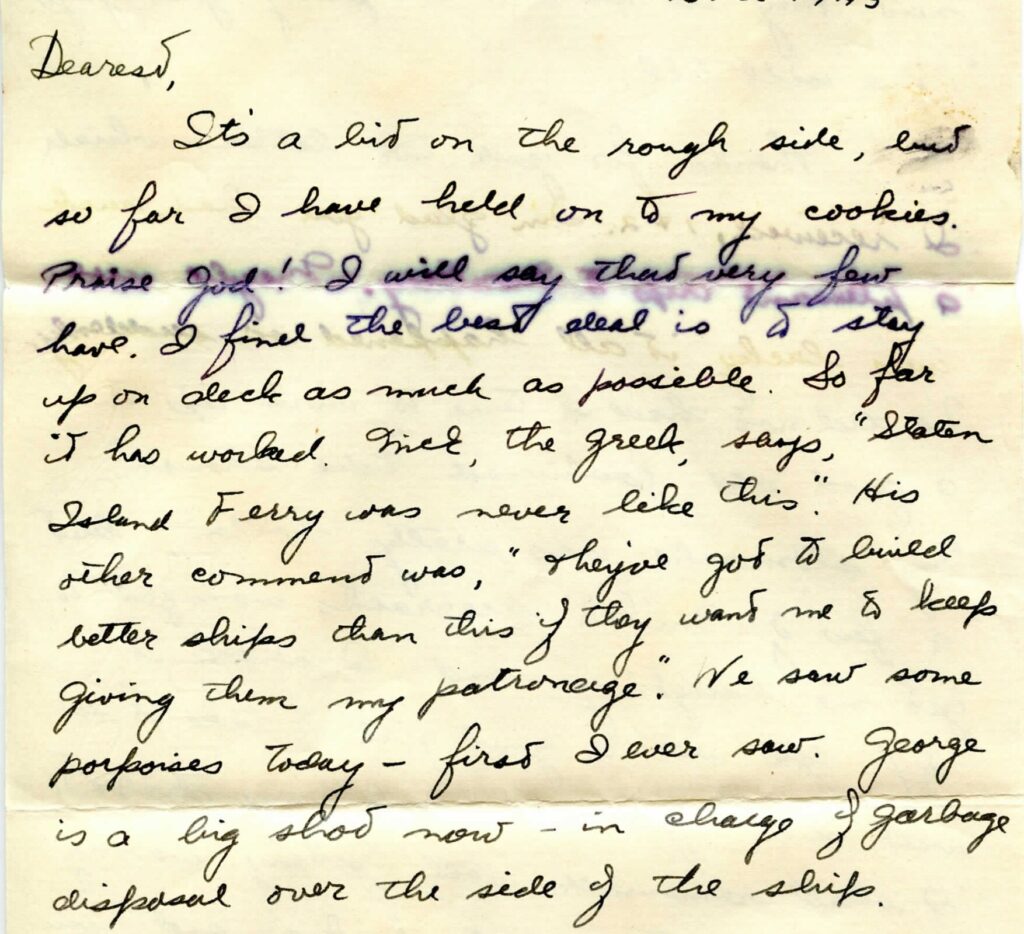 Dearest,
It's a bit on the rough side, but
so far I have held on to my cookies.
Praise God! I will say that very few
have. I find the best deal is to stay
up on deck as much as possible. So far
it has worked. Nick, the Greek, says, "Staten
Island Ferry was never like this". His
other comment was, "They've got to build
better ships than this if they want me to keep
giving them my patronage". We saw some
porpoises today - first I ever saw. George
is a big shot now - in charge of garbage
disposal over the side of the ship.